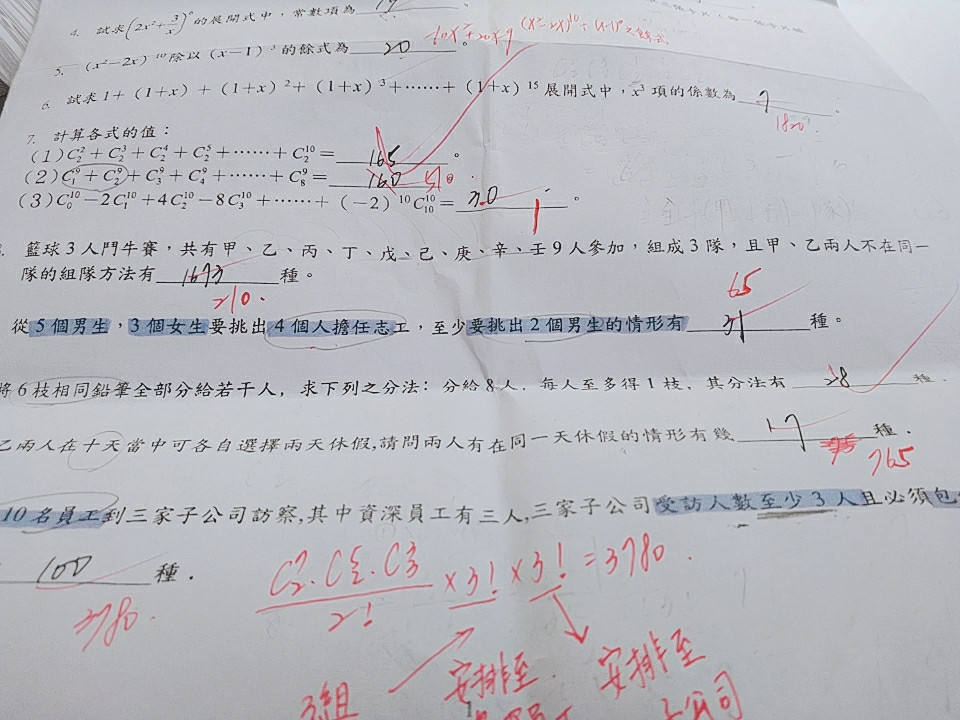 4. 試求(2x²+3/x)⁶的展開式中，常數項為
5. (x²−2x)¹⁰除以(x−1)³的餘式為 20 。 -10x²+20x-9 (x²-2x)¹⁰÷(x-1)³之餘式
6. 試求1+(1+x)+(1+x)²+(1+x)³+……+(1+x)¹⁵展開式中，x³項的係數為 7
1820.
7. 計算各式的值：
(1)C²₂+C³₂+C⁴₂+C⁵₂+……+C¹⁰₂= 165 。
(2)C⁹₁+C⁹₂+C⁹₃+C⁹₄+……+C⁹₈= 160 510 。
(3)C¹⁰₀−2C¹⁰₁+4C¹⁰₂−8C¹⁰₃+……+(−2)¹⁰C¹⁰₁₀= 30 。 1
籃球3人鬥牛賽，共有甲、乙、丙、丁、戊、己、庚、辛、壬9人參加，組成3隊，且甲、乙兩人不在同一
隊的組隊方法有 1673 種。
210.
65
從5個男生，3個女生要挑出4個人擔任志工，至少要挑出2個男生的情形有 31 種。
將6枝相同鉛筆全部分給若干人，求下列之分法：分給8人．每人至多得1枝．其分法有 28 種．
乙兩人在十天當中可各自選擇兩天休假,請問兩人有在同一天休假的情形有幾 17 種．
765
10名員工到三家子公司訪察,其中資深員工有三人,三家子公司受訪人數至少3人且必須包
100 種．
3780.
C⁷₂·C⁵₂·C³₃/2! ×3!×3!=3780.
3組 安排至 安排至
子公司